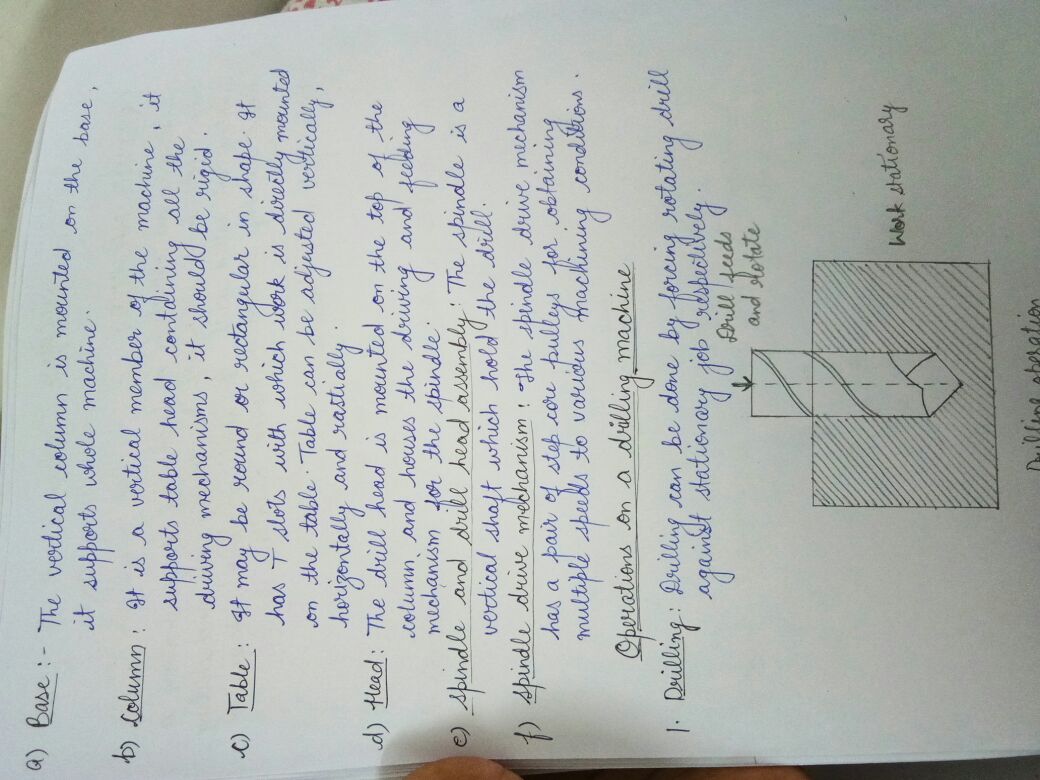 a) Base :- The vertical column is mounted on the base,
it supports whole machine.
b) Column : It is a vertical member of the machine, it
supports table head containing all the
driving mechanisms, it should be rigid.
c) Table : It may be round or rectangular in shape. It
has T slots with which work is directly mounted
on the table. Table can be adjusted vertically,
horizontally and rastially.
d) Head : The drill head is mounted on the top of the
column, and houses the driving and feeding
mechanism for the spindle.
e) Spindle and drill head assembly : The spindle is a
vertical shaft which hold the drill.
f) Spindle drive mechanism : The spindle drive mechanism
has a pair of step core pulleys for obtaining
multiple speeds to various machining conditions.
Operations on a drilling machine
1. Drilling : Drilling can be done by forcing rotating drill
against stationary job respectively.
Drill feeds
and rotate
Work stationary
Drilling operation